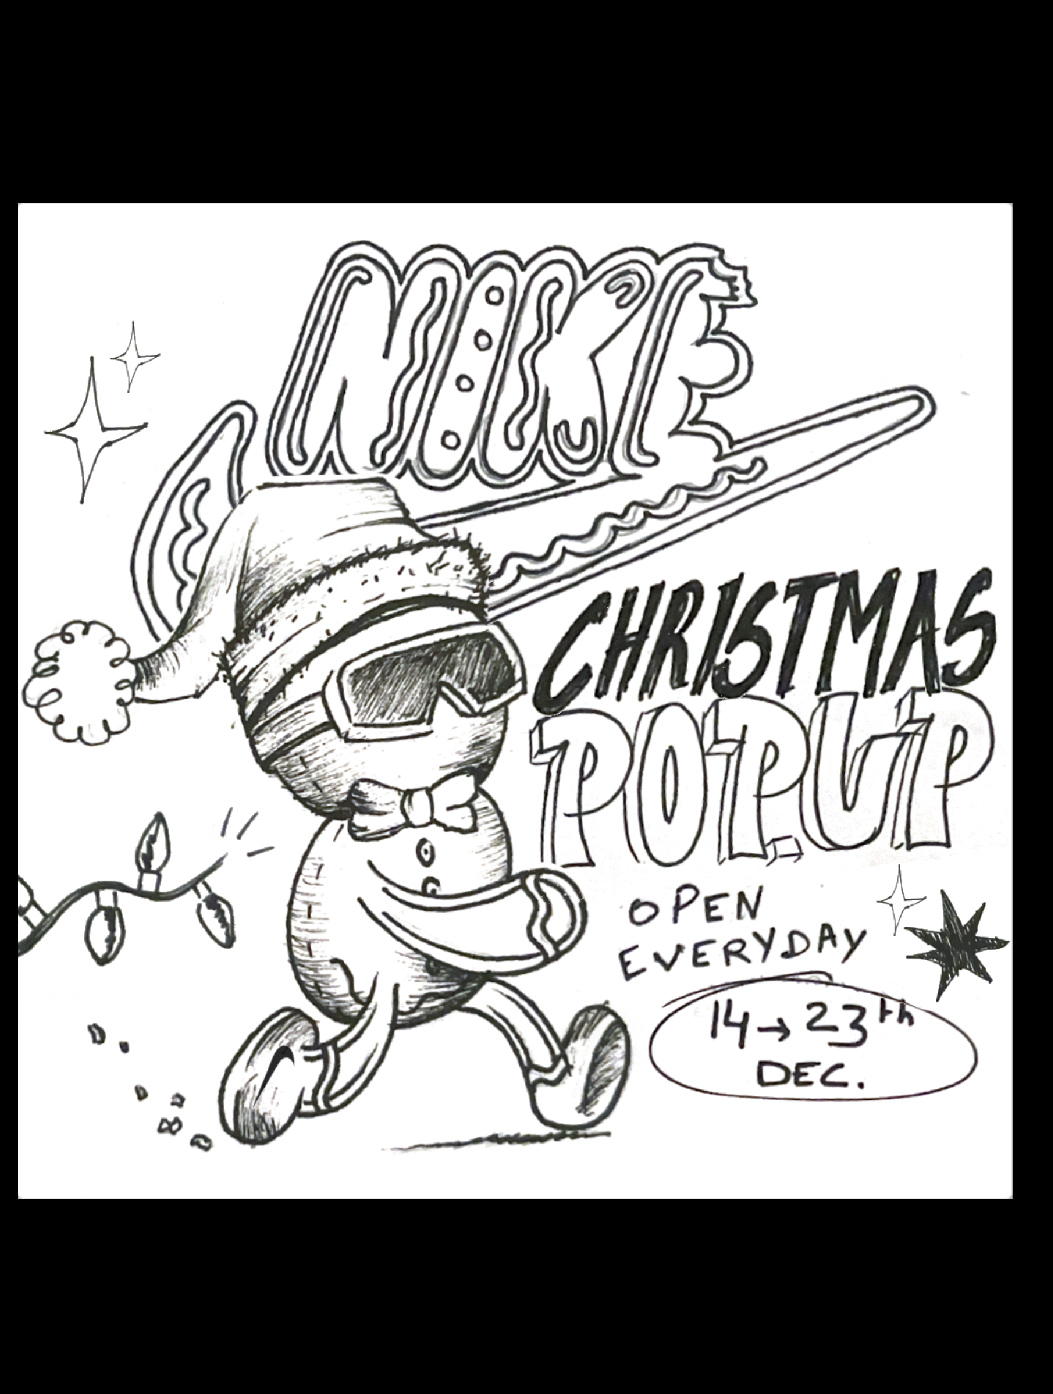 NIKE
CHRISTMAS
POP.UP
OPEN
EVERYDAY
14→23th
DEC.